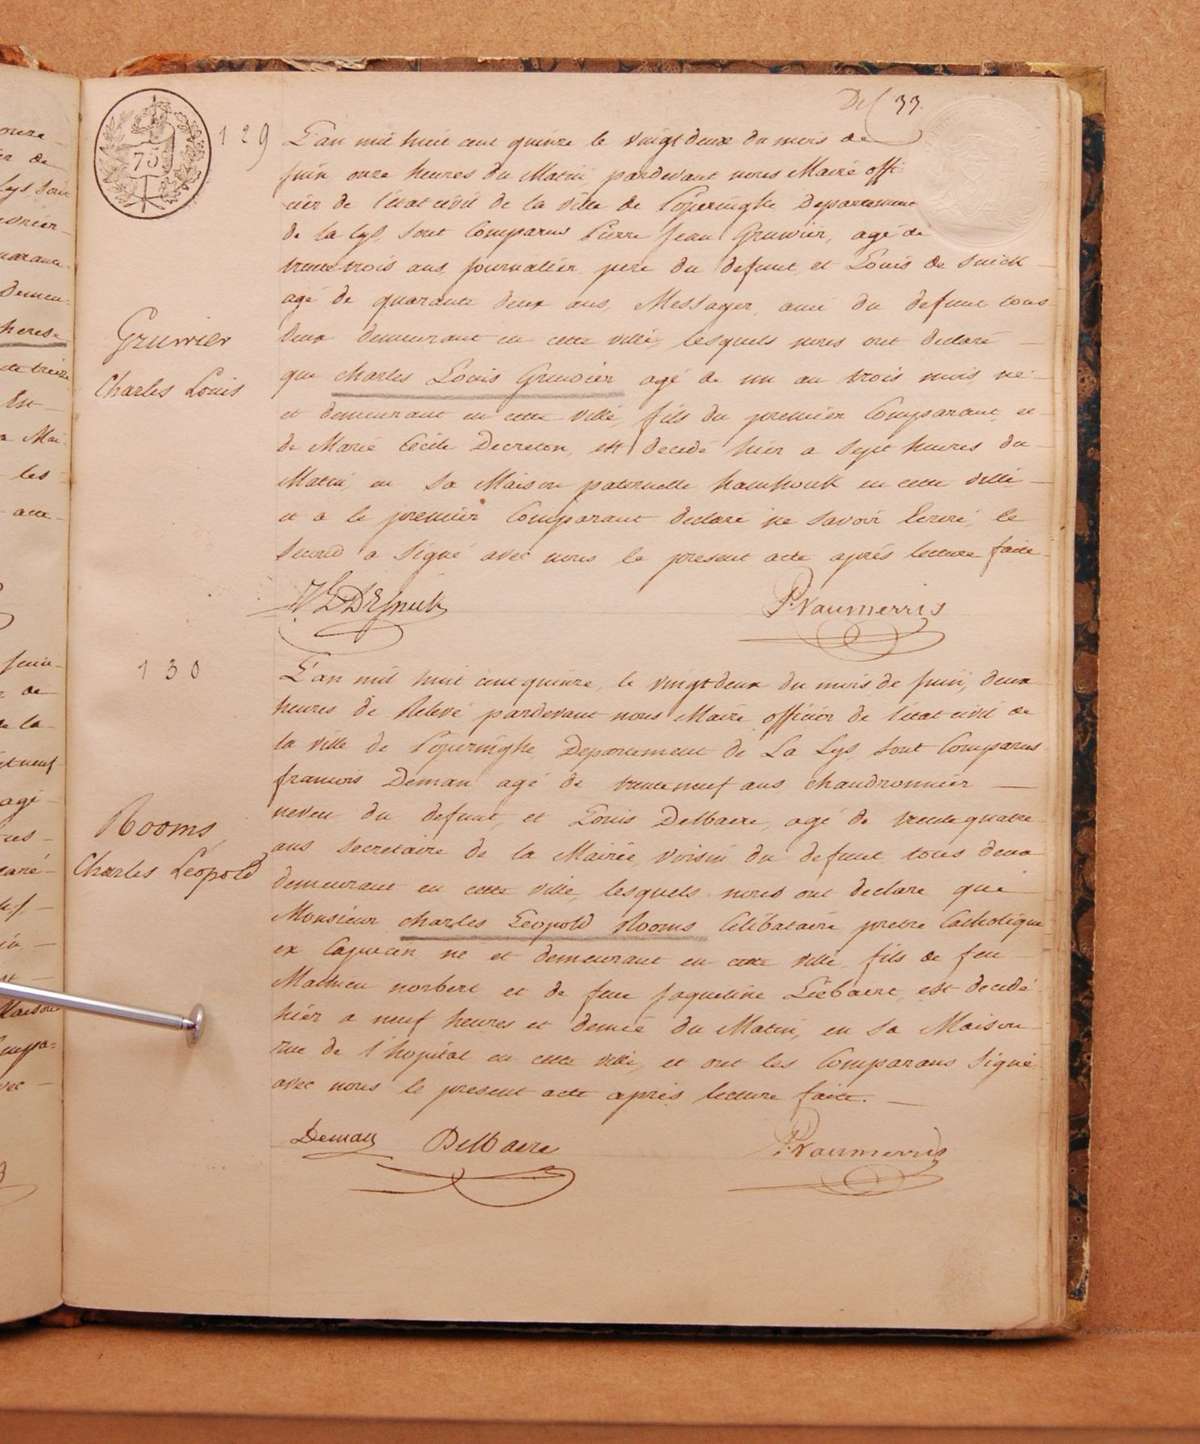 Del 33.
75
129
L'an mil huit cent quinze le vingt deux du mois de
juin onze heures du Matin pardevant nous Maire offi
cier de l'état civil de la ville de Poperinghe Departement
de la Lys, sont Comparus Pierre Jean Gruwier, agé de
trente trois ans, journalier, pere du defunt, et Louis de snick
agé de quarante deux ans, Messager, ami du defunt tous
deux demeurant en cette ville, lesquels nous ont declaré
Gruwier
Charles Louis
que charles Louis Gruwier agé de un an trois mois né
et demeurant en cette ville, fils du premier Comparant, et
de Marie Cécile Decreton, est decedé hier a sept heures du
Matin, en sa Maison paternelle hamhouk en cette ville
et a le premier Comparant declaré ne savoir Ecrire, le
second a signé avec nous le present acte après lecture faite
DEsnick
P. Vanmerris
130
L'an mil huit cent quinze, le vingt deux du mois de juin, deux
heures de Relevé pardevant nous Maire officier de l'etat civil de
la ville de Poperinghe Departement de La Lys, sont Comparus
francois Deman agé de trente neuf ans chaudronnier
neveu du defunt, et Louis Delbaere, agé de trente quatre
ans secretaire de la Mairie, voisin du defunt tous deux
demeurant en cette ville, lesquels nous ont declare que
Rooms,
Charles Léopold
Monsieur charles Léopold Rooms Célibataire pretre Catholique
ex Capucin né et demeurant en cette ville, fils de feu
Mathieu norbert et de feue jaqueline Liebaert, est decedé
hier a neuf heures et demie du Matin, en sa Maison
rue de l'hopital en cette ville, et ont les Comparans signé
avec nous le present acte après lecture faite.
Deman Delbaere
P. Vanmerris